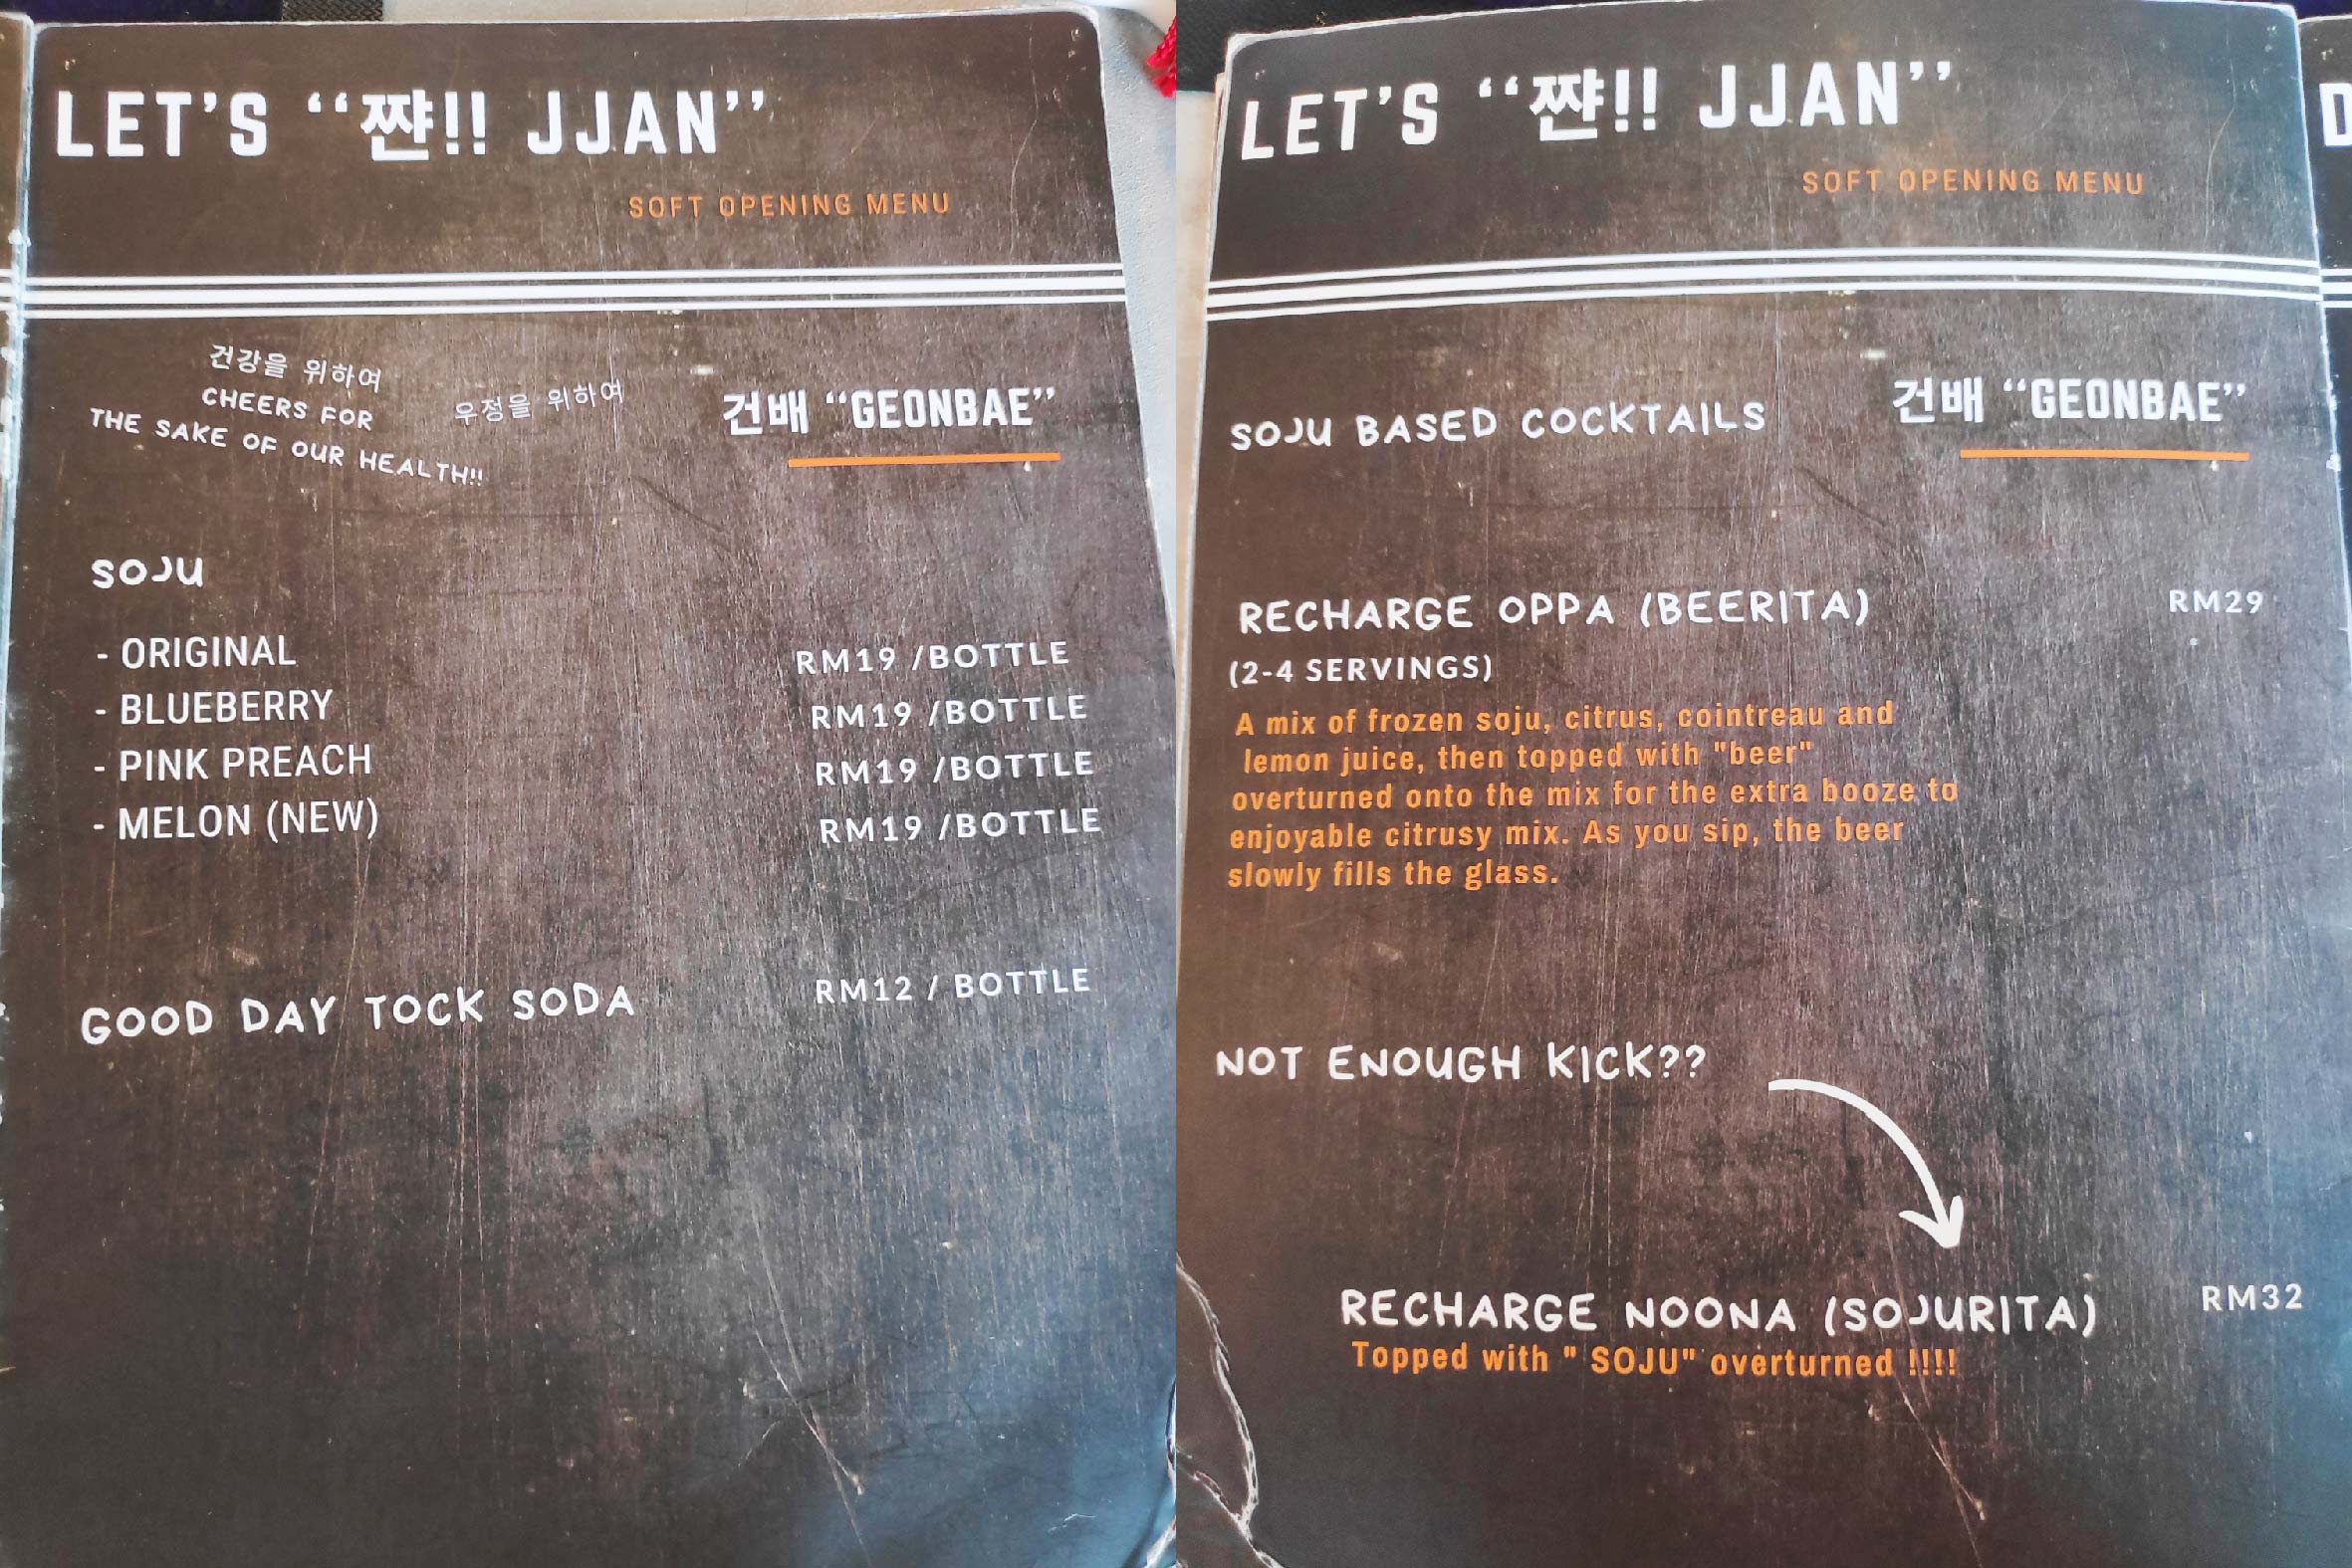 LET'S “쨘!! JJAN”
SOFT OPENING MENU
건강을 위하여
CHEERS FOR
THE SAKE OF OUR HEALTH!!
우정을 위하여
건배 “GEONBAE”
SOJU
- ORIGINAL RM19 /BOTTLE
- BLUEBERRY RM19 /BOTTLE
- PINK PREACH RM19 /BOTTLE
- MELON (NEW) RM19 /BOTTLE
GOOD DAY TOCK SODA RM12 / BOTTLE
LET'S “쨘!! JJAN”
SOFT OPENING MENU
SOJU BASED COCKTAILS
건배 “GEONBAE”
RECHARGE OPPA (BEERITA) RM29
(2-4 SERVINGS)
A mix of frozen soju, citrus, cointreau and
lemon juice, then topped with "beer"
overturned onto the mix for the extra booze to
enjoyable citrusy mix. As you sip, the beer
slowly fills the glass.
NOT ENOUGH KICK??
RECHARGE NOONA (SOJURITA) RM32
Topped with " SOJU" overturned !!!!